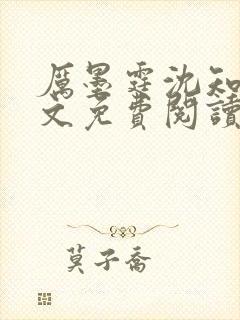 厲墨霆沈知
文免費閱讀
莫子喬